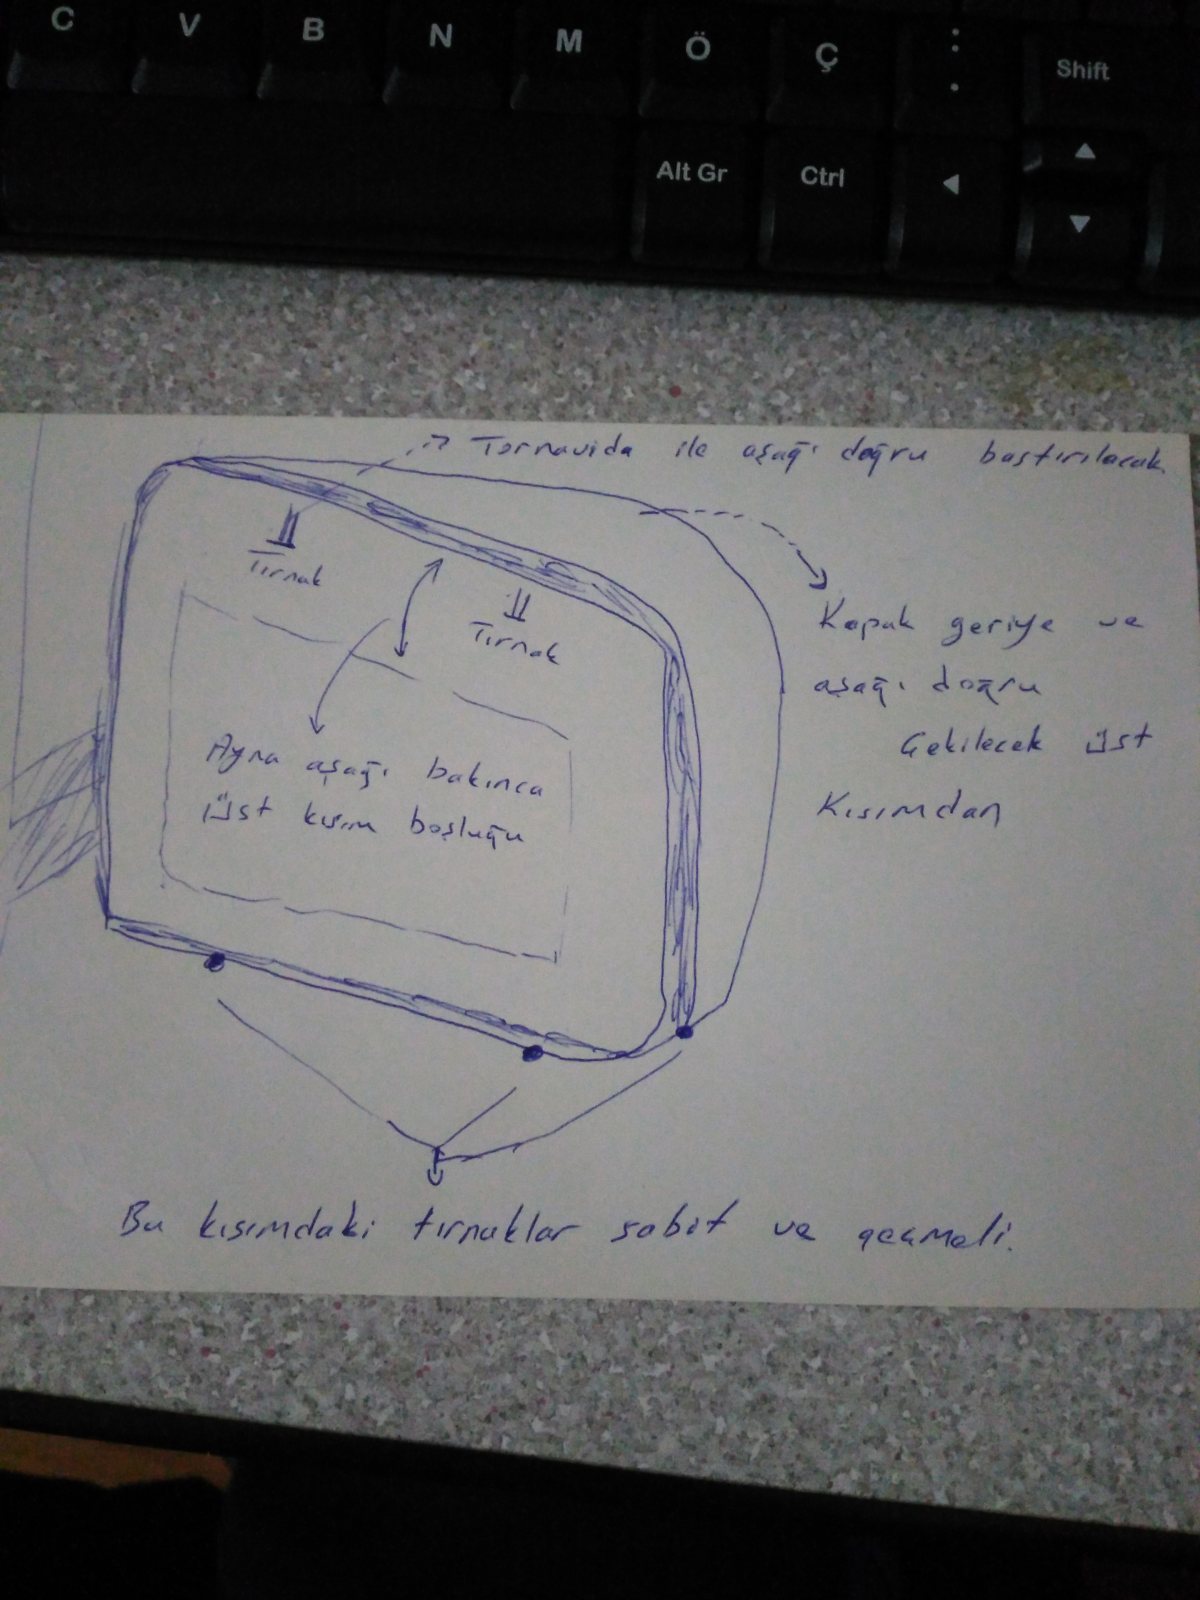 C V B N M Ö Ç : . Shift
Alt Gr Ctrl
Tornavida ile aşağı doğru bastırılacak
Tırnak
Tırnak
Kapak geriye ve
aşağı doğru
Çekilecek üst
Kısımdan
Ayna aşağı bakınca
üst kısım boşluğu
Bu kısımdaki tırnaklar sabit ve geçmeli.